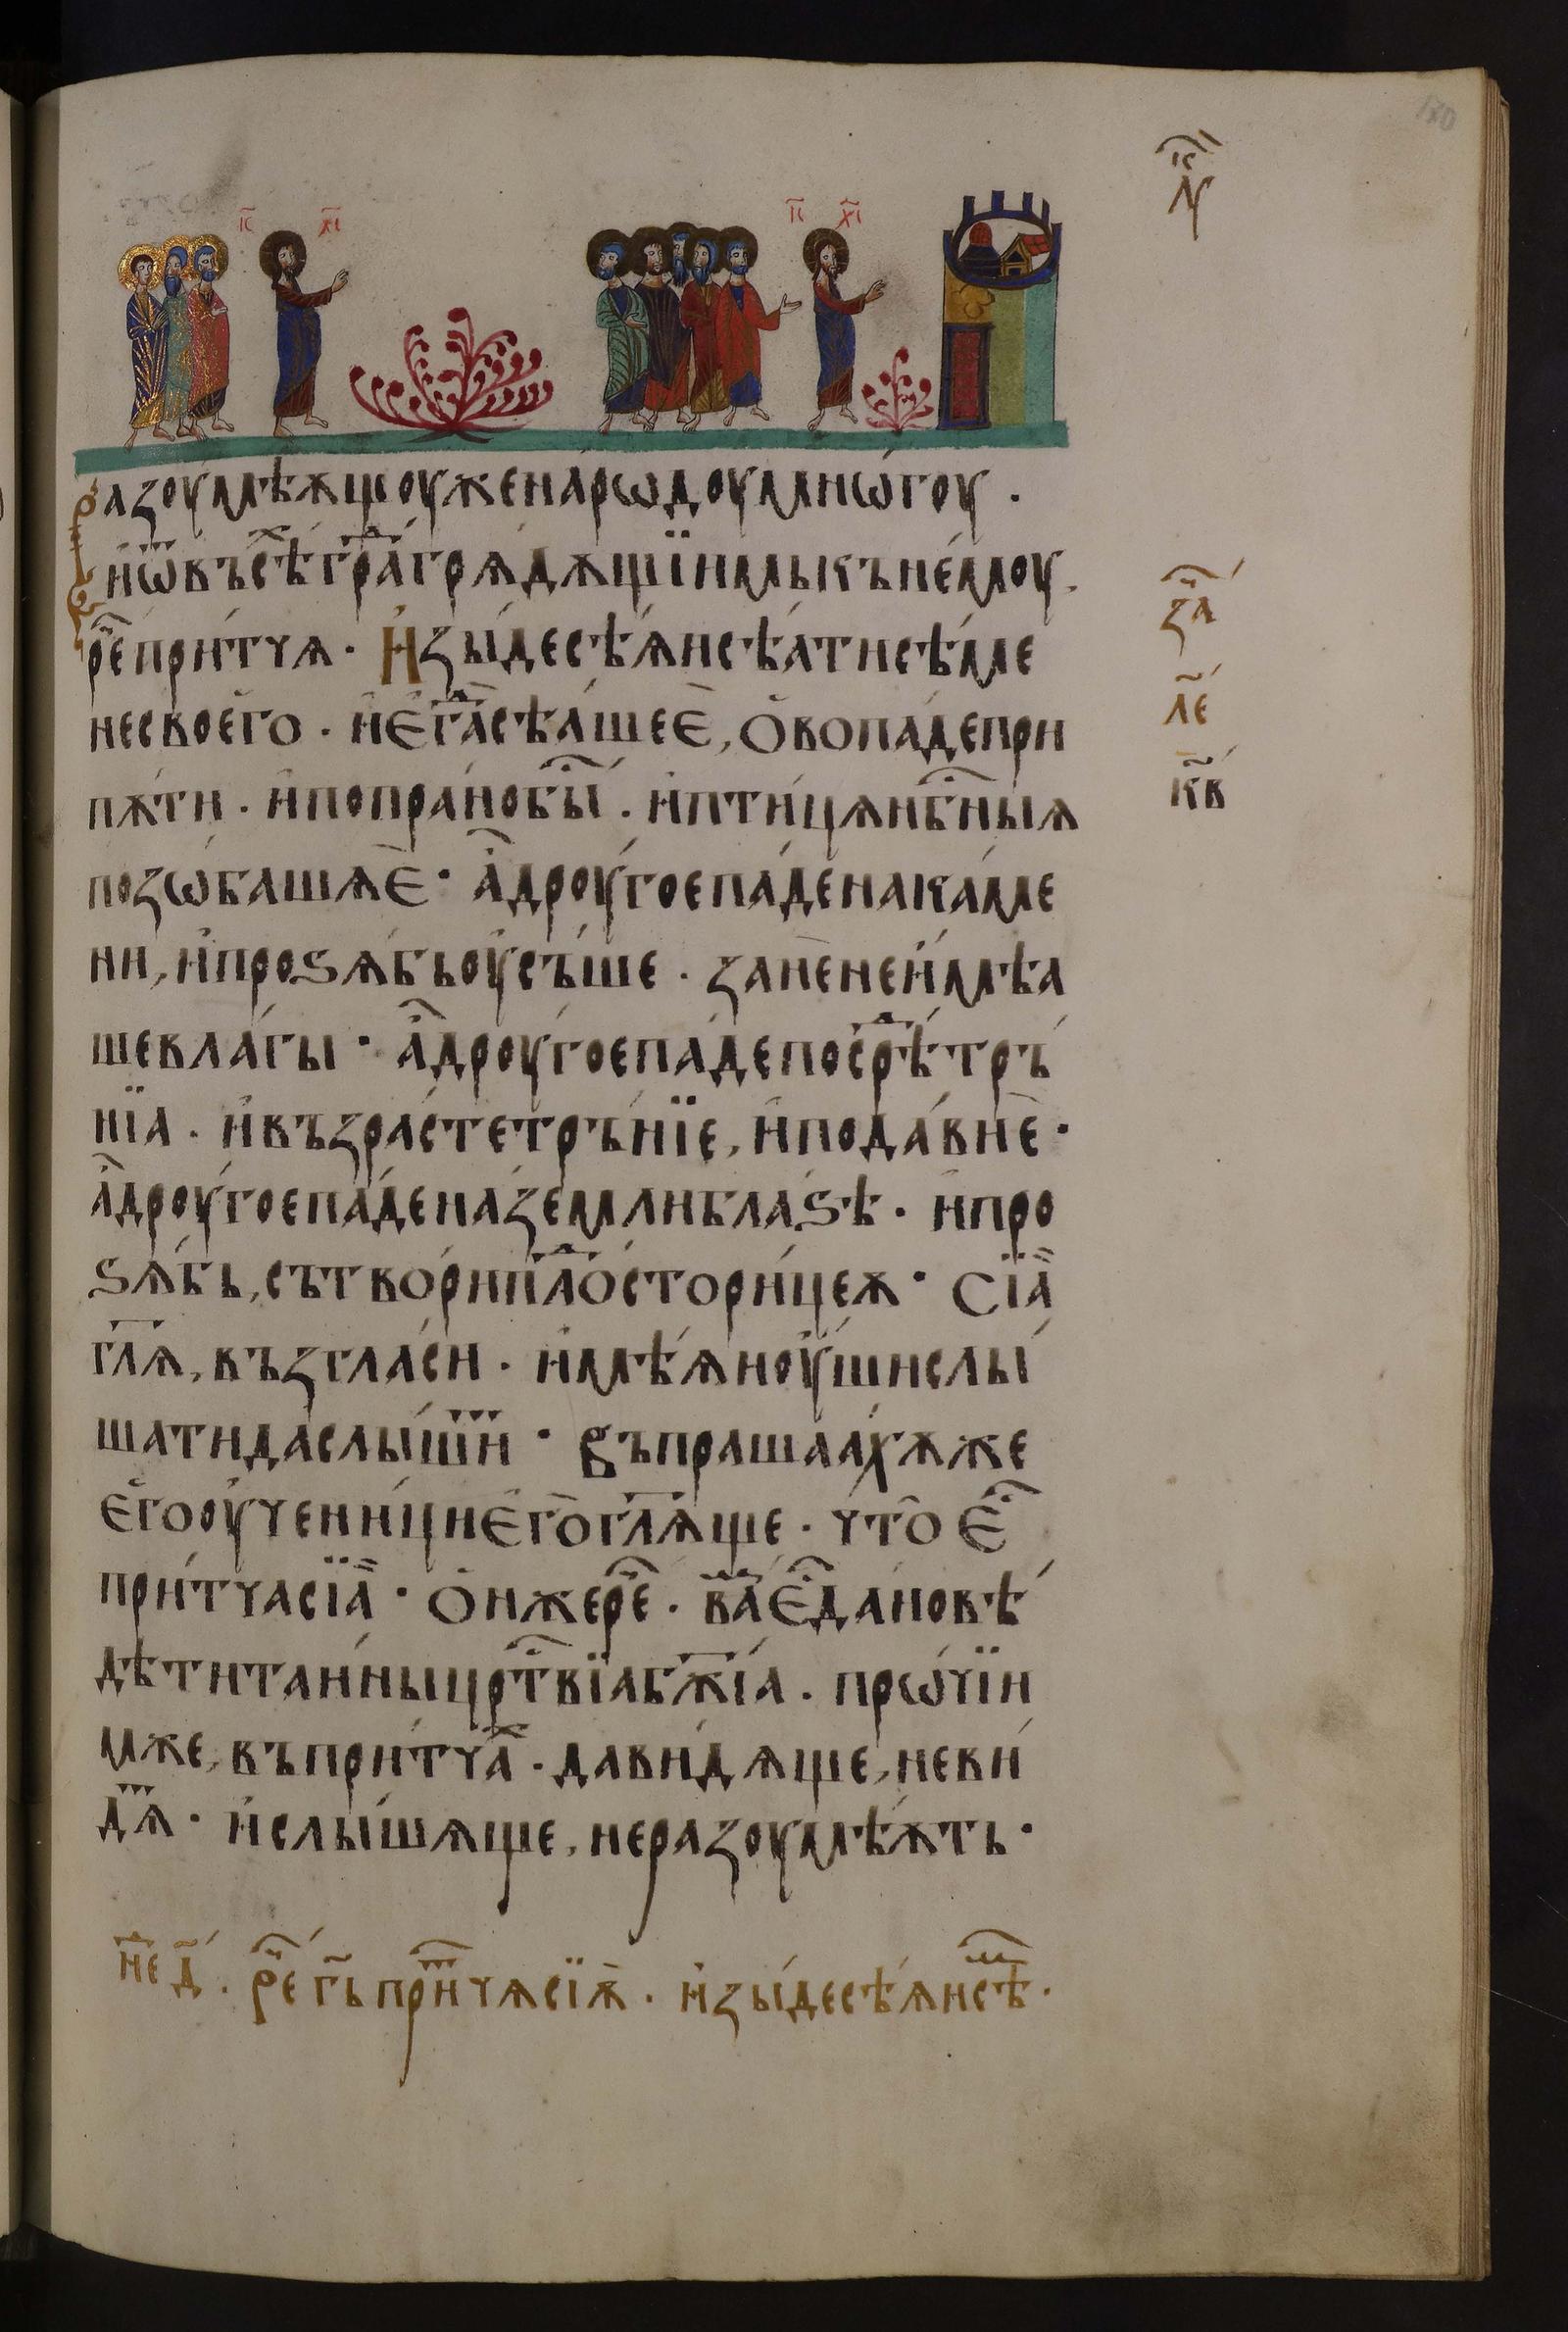 І҃С Х҃С І҃С Х҃С
разоумѣѫщоуженаро́дѡумнѡ́гоу ·
и҆ѿвъсѣⷯгра́ⷣгрѧдѫщїимькънемоу ·
ре҃при́тчѧ · И҆зы́десѣ́ѧисѣ́атисѣ́ме
несвоего̀ · и҆є҆гда̀сѣ́ашеѐ, ѻ҆вопа́депри
пѫ́ти · и҆попра́нобы́ⷭ · и҆пти́цѧнб҃ны́ѧ
позѡба́шѧѐ · а҆дроу́гоепа́денака́ме
ни, и҆проѕѧ́бьоу҆съ́ше · занѐнеи҆мѣ́а
шевла́гы · а҆дроу́гоепа́депосрѣⷣтръ́
нїа · и҆възра́стетръ́нїе, и҆пода́виѐ ·
а҆дроу́гоепа́деназе́млиблаѕѣ · и҆про
ѕѧ́бь, сътвориплⷣо́стори́цеѫ · Сїа̀
гл҃ѧ, възгла́си · и҆мѣ́ѧиоу́шислы́
шатидаслы́шиⷮ · Въпрашаахѫже
є҆гооу҆чени́циє҆го̀гл҃ѧще · что̀є҆ⷭ
при́тчасїа̀ · ѻ҆нжере҃ · ваⷨє҆ⷭдановѣ́
дѣтита́иныцрⷭ҇твїаб҃жїа · прѡ́чїи
мже, въпри́тчаⷯ · дави́дѧще, неви́
дѧⷮ · и҆слы́шѧще, неразоумѣ́ѫть ·
неⷣ д҃ · ре҃ г҃ьприⷮчѧсїѫ̀ · и҆зы́десѣ́ѧисѣⷮ ·
за҃
ле҃
к҃в